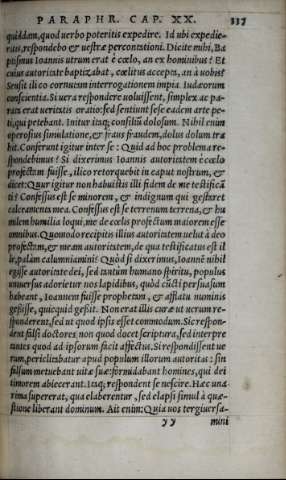 PARAPHR. CAP. XX. 337
quiddam, quod uerbo poteritis expedire. Id ubi expedie-
ritis, respondebo & uestræ percontationi. Dicite mihi, Ba
ptismus Ioannis utrum erat è cœlo, an ex hominibus? Et
cuius autoritate baptizabat, cœlitus accepta, an à uobis?
Sensit illico cornutam interrogationem impia Iudæorum
conscientia. Si uera respondere uoluissent, simplex ac pa-
rata erat ueritatis oratio: sed sentiunt sese eadem arte pe-
ti, qua petebant. Initur itaque consilium dolosum. Nihil enim
operosius simulatione, & fraus fraudem, dolus dolum tra
hit. Conferunt igitur inter se: Quid ad hoc problema re-
spondebimus? Si dixerimus Ioannis autoritatem è cœlo
profectam fuisse, illico retorquebit in caput nostrum, &
dicet: Quur igitur non habuistis illi fidem de me testificã
ti? Confessus est se minorem, & indignum qui gestaret
calceamenta mea. Confessus est se terrenum terrena, & hu
milem humilia loqui, me de cœlis profectum maiorem esse
omnibus. Quomodo recipitis illius autoritatem uelut à deo
profectam, & meam autoritatem, de qua testificatus est il
le, palàm calumniamini? Quòd si dixerimus, Ioannẽ nihil
egisse autoritate dei, sed tantùm humano spiritu, populus
uniuersus adorietur nos lapidibus, quòd cũcti persuasum
habeant, Ioannem fuisse prophetam, & afflatu numinis
gessisse, quicquid gessit. Non erat illis curæ ut uerum re-
sponderent, sed ut quod ipsis esset commodum. Sic respon-
dent falsi doctores non quod docet scriptura, sed interpre
tantes quod ad ipsorum facit affectus. Si respondissent ue
rum, periclitabatur apud populum illorum autoritas: sin
falsum metuebant uitæ suæ: formidabant homines, qui dei
timorem abiecerant. Itaque respondent se nescire. Hæc una
rima supererat, qua elaberentur, sed elapsi simul à quæ-
stione liberant dominum. Ait enim: Quia uos tergiuersa-
yy mini